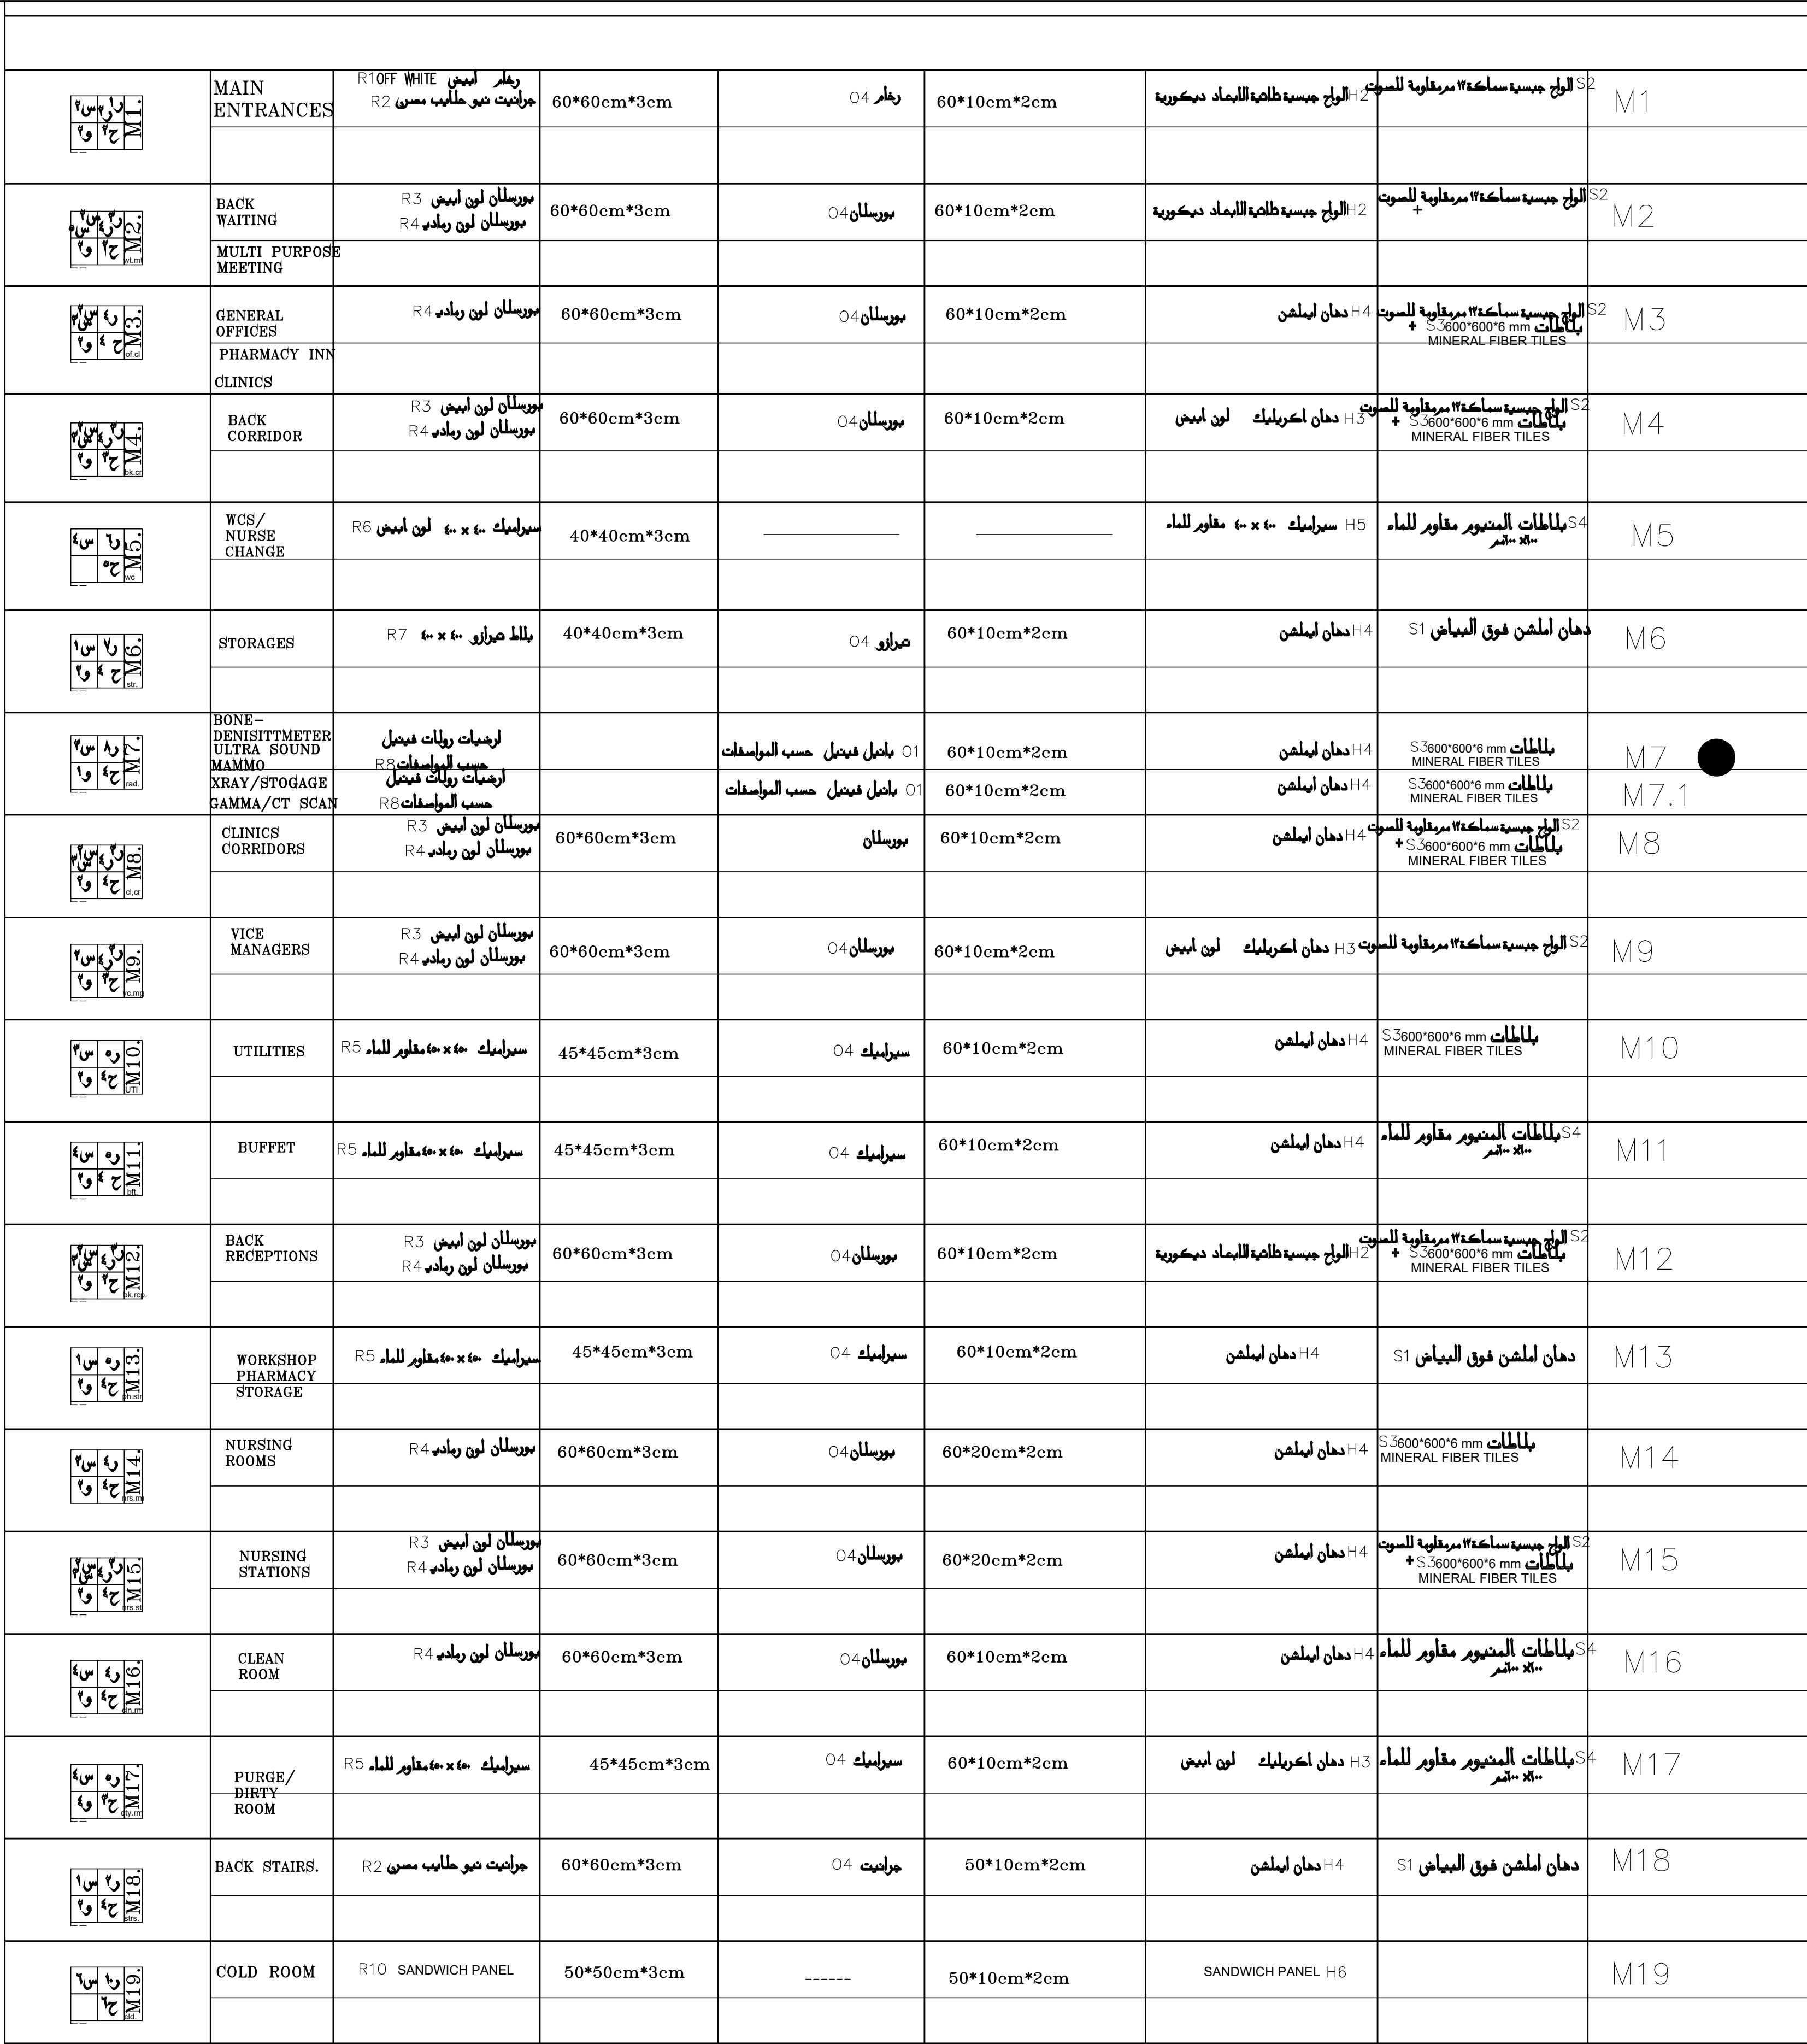 ر١ ر٢ س٢
ح٢ و٢
M1.
MAIN
ENTRANCES
رخام ابيض R1OFF WHITE
جرانيت نيو حلايب مصرى R2
60*60cm*3cm
رخام 04
60*10cm*2cm
الواح جبسية ثلاثية الابعاد ديكورية H2
الواح جبسية سماكة١٢ مم مقاومة للصوت S2
M1
M2.
wt.mt
BACK
WAITING
بورسلان لون ابيض R3
بورسلان لون رمادى R4
60*60cm*3cm
بورسلان 04
60*10cm*2cm
الواح جبسية ثلاثية الابعاد ديكورية H2
الواح جبسية سماكة١٢ مم مقاومة للصوت S2
+
M2
MULTI PURPOSE
MEETING
M3.
of.cl
GENERAL
OFFICES
بورسلان لون رمادى R4
60*60cm*3cm
بورسلان 04
60*10cm*2cm
دهان ايملشن H4
الواح جبسية سماكة١٢ مم مقاومة للصوت S2
+ S3 600*600*6 mm بلاطات
MINERAL FIBER TILES
M3
PHARMACY INN
CLINICS
M4.
bk.cr
BACK
CORRIDOR
بورسلان لون ابيض R3
بورسلان لون رمادى R4
60*60cm*3cm
بورسلان 04
60*10cm*2cm
دهان اكريليك لون ابيض H3
الواح جبسية سماكة١٢ مم مقاومة للصوت S2
+ S3 600*600*6 mm بلاطات
MINERAL FIBER TILES
M4
ر٦ س٤
ح٥
M5.
wc
WCS/
NURSE
CHANGE
سيراميك ٤٠٠ x ٤٠٠ لون ابيض R6
40*40cm*3cm
سيراميك ٤٠٠ x ٤٠٠ مقاوم للماء H5
بلاطات المنيوم مقاوم للماء S4
٦٠٠x ٦٠٠مم
M5
ر٧ س١
ح٤ و٢
M6.
str.
STORAGES
بلاط تيرازو ٤٠٠ x ٤٠٠ R7
40*40cm*3cm
تيرازو 04
60*10cm*2cm
دهان ايملشن H4
دهان املشن فوق البياض S1
M6
ر٨ س٣
ح٤ و١
M7.
rad.
BONE-
DENISITTMETER
ULTRA SOUND
MAMMO
ارضيات رولات فينيل
حسب المواصفات R8
بانيل فينيل حسب المواصفات 01
60*10cm*2cm
دهان ايملشن H4
S3 600*600*6 mm بلاطات
MINERAL FIBER TILES
M7
XRAY/STOGAGE
GAMMA/CT SCAN
ارضيات رولات فينيل
حسب المواصفات R8
بانيل فينيل حسب المواصفات 01
60*10cm*2cm
دهان ايملشن H4
S3 600*600*6 mm بلاطات
MINERAL FIBER TILES
M7.1
M8.
cl,cr
CLINICS
CORRIDORS
بورسلان لون ابيض R3
بورسلان لون رمادى R4
60*60cm*3cm
بورسلان
60*10cm*2cm
دهان ايملشن H4
الواح جبسية سماكة١٢ مم مقاومة للصوت S2
+ S3 600*600*6 mm بلاطات
MINERAL FIBER TILES
M8
ر٣ ر٤ س٢
ح٣ و٢
M9.
vc.mg
VICE
MANAGERS
بورسلان لون ابيض R3
بورسلان لون رمادى R4
60*60cm*3cm
بورسلان 04
60*10cm*2cm
دهان اكريليك لون ابيض H3
الواح جبسية سماكة١٢ مم مقاومة للصوت S2
M9
ر٥ س٣
ح٤ و٢
M10.
UTI
UTILITIES
سيراميك ٤٥٠ x ٤٥٠ مقاوم للماء R5
45*45cm*3cm
سيراميك 04
60*10cm*2cm
دهان ايملشن H4
S3 600*600*6 mm بلاطات
MINERAL FIBER TILES
M10
ر٥ س٤
ح٤ و٢
M11.
bft.
BUFFET
سيراميك ٤٥٠ x ٤٥٠ مقاوم للماء R5
45*45cm*3cm
سيراميك 04
60*10cm*2cm
دهان ايملشن H4
بلاطات المنيوم مقاوم للماء S4
٦٠٠x ٦٠٠مم
M11
M12.
bk.rcp.
BACK
RECEPTIONS
بورسلان لون ابيض R3
بورسلان لون رمادى R4
60*60cm*3cm
بورسلان 04
60*10cm*2cm
الواح جبسية ثلاثية الابعاد ديكورية H2
الواح جبسية سماكة١٢ مم مقاومة للصوت S2
+ S3 600*600*6 mm بلاطات
MINERAL FIBER TILES
M12
ر٥ س١
ح٤ و٢
M13.
ph.str
WORKSHOP
PHARMACY
STORAGE
سيراميك ٤٥٠ x ٤٥٠ مقاوم للماء R5
45*45cm*3cm
سيراميك 04
60*10cm*2cm
دهان ايملشن H4
دهان املشن فوق البياض S1
M13
ر٤ س٣
ح٤ و٢
M14.
nrs.rm
NURSING
ROOMS
بورسلان لون رمادى R4
60*60cm*3cm
بورسلان 04
60*20cm*2cm
دهان ايملشن H4
S3 600*600*6 mm بلاطات
MINERAL FIBER TILES
M14
M15.
nrs.st
NURSING
STATIONS
بورسلان لون ابيض R3
بورسلان لون رمادى R4
60*60cm*3cm
بورسلان 04
60*20cm*2cm
دهان ايملشن H4
الواح جبسية سماكة١٢ مم مقاومة للصوت S2
+ S3 600*600*6 mm بلاطات
MINERAL FIBER TILES
M15
ر٤ س٤
ح٤ و٢
M16.
cln.rm
CLEAN
ROOM
بورسلان لون رمادى R4
60*60cm*3cm
بورسلان 04
60*10cm*2cm
دهان ايملشن H4
بلاطات المنيوم مقاوم للماء S4
٦٠٠x ٦٠٠مم
M16
ر٥ س٤
ح٣ و٤
M17.
dty.rm
PURGE/
DIRTY
ROOM
سيراميك ٤٥٠ x ٤٥٠ مقاوم للماء R5
45*45cm*3cm
سيراميك 04
60*10cm*2cm
دهان اكريليك لون ابيض H3
بلاطات المنيوم مقاوم للماء S4
٦٠٠x ٦٠٠مم
M17
ر٢ س١
ح٤ و٢
M18.
strs.
BACK STAIRS.
جرانيت نيو حلايب مصرى R2
60*60cm*3cm
جرانيت 04
50*10cm*2cm
دهان ايملشن H4
دهان املشن فوق البياض S1
M18
ر١٠ س٦
ح٦
M19.
cld.
COLD ROOM
R10 SANDWICH PANEL
50*50cm*3cm
------
50*10cm*2cm
SANDWICH PANEL H6
M19